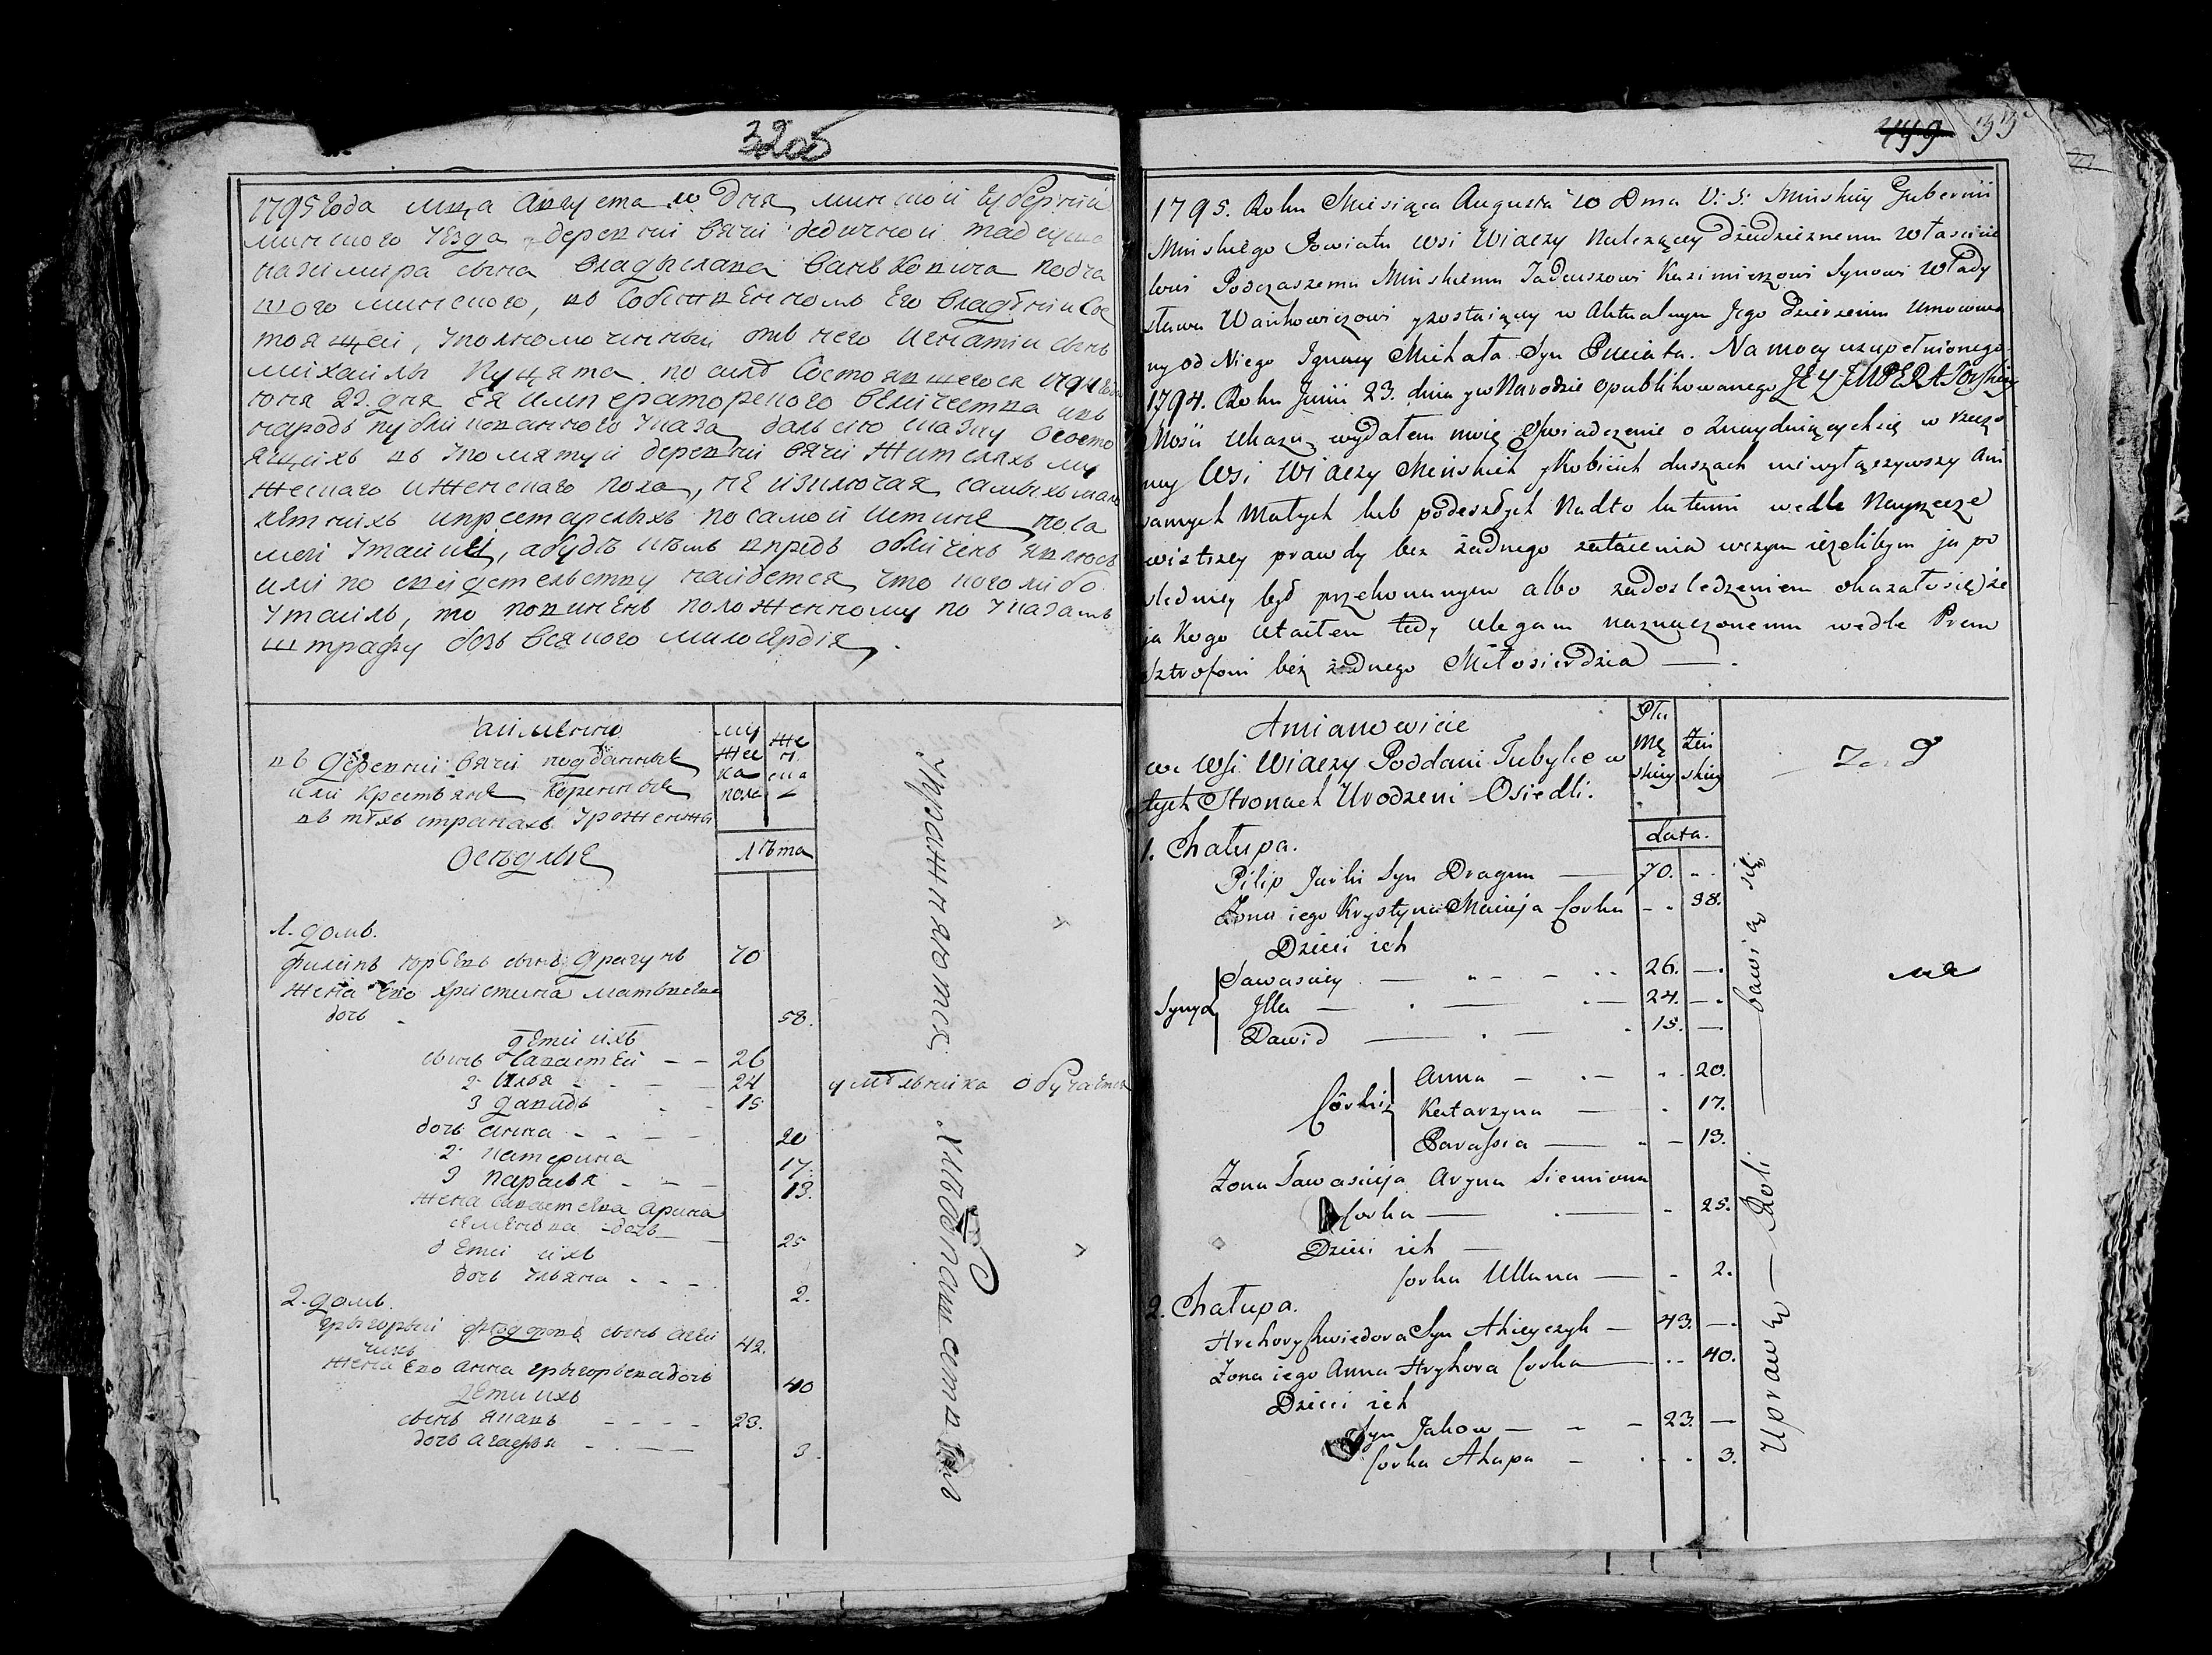 3205
1795 года мца августа 10 дня минской губерніи
минского уезда деревни вячи дедичной тадеуша
казимира сына владыслава ваньковича подча
шого минского, въ собственномъ его владѣніи сос
тоящей, уполномоченный отъ него игнатій сынъ
михаилъ пуцята по силѣ состоявшегося 1794 года
юня 23 дня ея императорского величества въ
народъ публикованного указа далъ сию сказку о состо
ящихъ въ упомянутой деревни вячи жителяхъ му
жескаго и женскаго пола, не изключая самыхъ мало
летнихъ и престарелыхъ по самой истине
утайки, а будѣ кѣмъ впредь обличенъ явлюсь
или по свидетельству найдется что кого либо
утаилъ, то повиненъ положенному по указамъ
штрафу безъ всякого милосердія.
а имянно
въ деревни вячи подданные
или крестьяне коренные
въ техъ странахъ урожённы
оседлые
муж
ска
пола
жен
ска
лѣта
1. домъ.
филипъ юрьевъ сынъ драгунъ 70
жена его христина матвиева
дочь 58.
дети ихъ
сынъ савастей - - 26
2. илья - - - 24 у мѣльника обучается
3 давидъ - - 15
дочь анна - - - - 20
2. катерина 17.
3 парасья - - - 13.
жена савастея арина
семенова дочь - - 25
дети ихъ
дочь ульяна - - - 2.
2. домъ.
грыгорый фёдоровъ сынъ 42.
жена его анна грыгорьева дочь 40
дети ихъ
сынъ яковъ - - - - 23.
дочь агафья - - - 3.
упражняются хлѣбопашествомъ
449 33
1795. Roku Miesiąca Augusta 10 Dnia V: S: Minskiey Gubernii
Minskiego Powiatu wsi Wiaczy Należącey dziedzicznemu właścicie
lowi Podczaszemu Minskiemu Tadeuszowi Kazimierzowi Synowi Włady
sława Wańkowiczowi y zostaiącey w Aktualnym Jego Dzierzeniu Umocowa
ny od Niego Ignacy Michała Syn Puciata. Na mocy uzupełnionego
1794. Roku Junii 23. dnia y w Narodzie opublikowanego JEY IMPERATorskiey
Mosci Ukazu, wydałem moię Opwiadczenie o Znayduiących się w rzeczo
ney Wsi Wiaczy Męskich y Kobicich duszach niewyłączywszy Ani
samych Małych lub podeszłych Nadto latami wedle Nayrzecze
wistszey prawdy bez żadnego zataienia wczym ieżelibym ja po
sledniey był przekonanym albo zadosledzeniem okazałosię że
ja Kogo Utaiłem tedy Ulegam naznaczonemu wedle Praw
Sztrofowi bez żadnego Miłosierdzia —.
Amianowicie
we Wsi Wiaczy Poddani Tubylce w
tych Stronach Urodzeni Osiedli.
Płci
Mę
skiey
Żeń
skiey
Lata.
1. Chałupa.
Pilip Jurki Syn Dragun — 70. - -
Żona iego Krystyna Macieja Corka - - 58.
Dzieci ich
Synowie
Sawasciey — - - 26. —.
Illa — . — 24. —.
Dawid — . — 15. —.
Córki
Anna — . — . . 20.
Katarzyna — . 17.
Parassia — - — 13.
Żona Sawascieja Aryna Siemiona
Corka — . — - 25.
Dzieci ich —
Corka Ullana — - 2.
2. Chałupa.
Hrehory Chwiedora Syn Ahieyczyk — 43. —.
Żona iego Anna Hryhora Corka — . . 40.
Dzieci ich
Syn Jakow — - - 23. —
Corka Ahapa - . . . 3.
Uprawą — Roli — bawią się